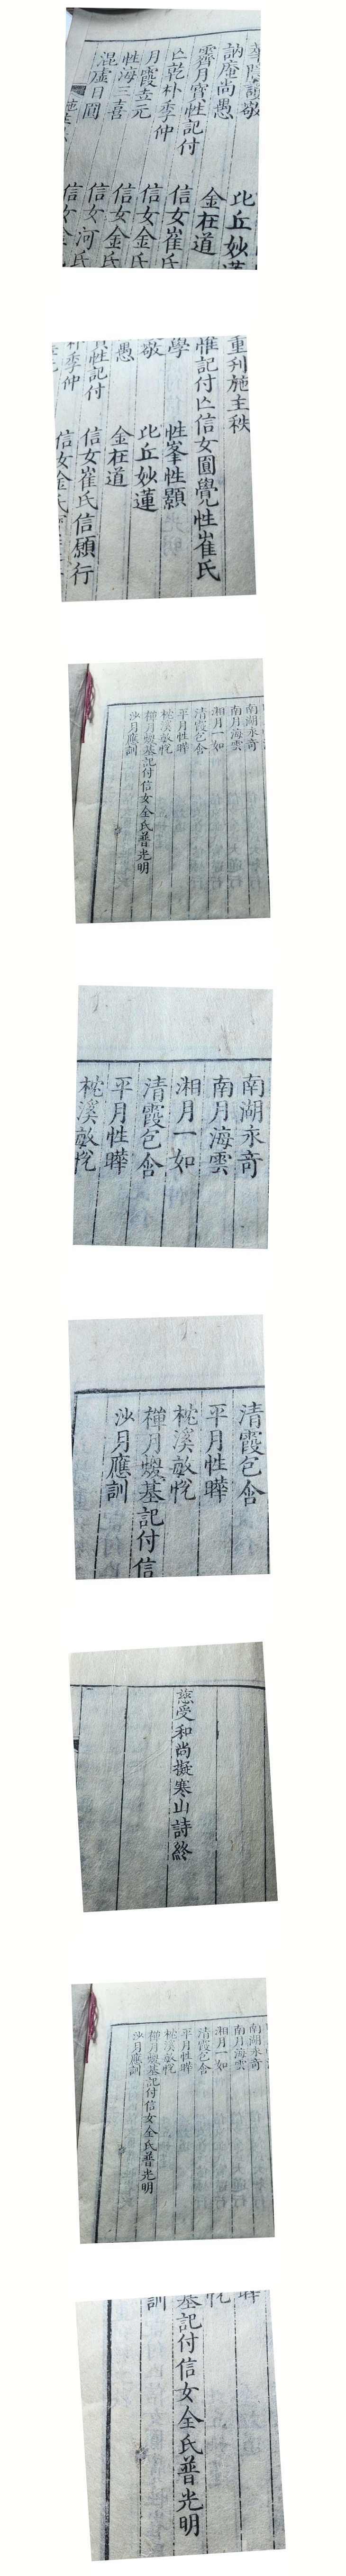 訥庵尚愚
霽月寶性記付
亾乾朴季仲
月霞壺元
性海三喜
混虛日圓
比丘妙蓮
金在道
信女崔氏
信女金氏
信女金氏
信女河氏
信女金氏
重刋施主秩
惟記付亾信女圓覺性崔氏
學
敬
愚
性記付
朴季仲
性峯性顥
比丘妙蓮
金在道
信女崔氏信願行
信女金氏
南湖永奇
南月海雲
湘月一如
清霞包含
平月性曄
枕溪敏悅
櫸月㷜基記付信女全氏普光明
沙月應訓
南湖永奇
南月海雲
湘月一如
清霞包含
平月性曄
枕溪敏悅
清霞包含
平月性曄
枕溪敏悅
櫸月㷜基記付信
沙月應訓
慈受和尚擬寒山詩終
南湖永奇
南月海雲
湘月一如
清霞包含
平月性曄
枕溪敏悅
櫸月㷜基記付信女全氏普光明
沙月應訓
基記付信女全氏普光明
訓